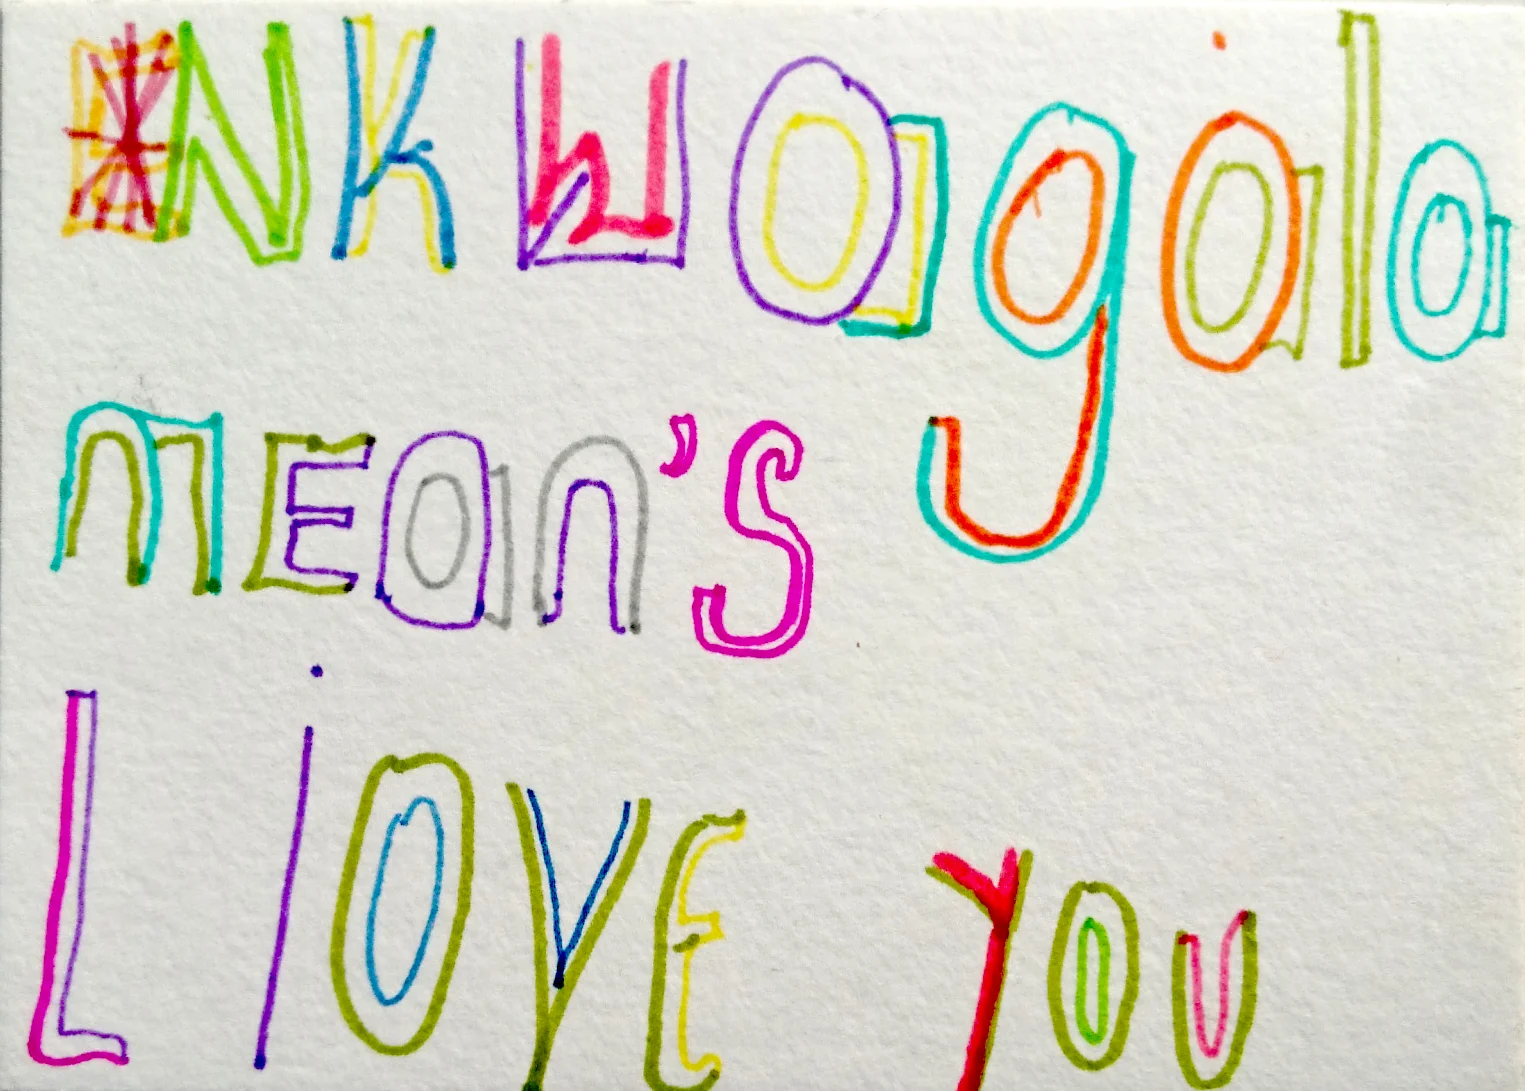 NKWagala
mEan's
L iOVE YOU